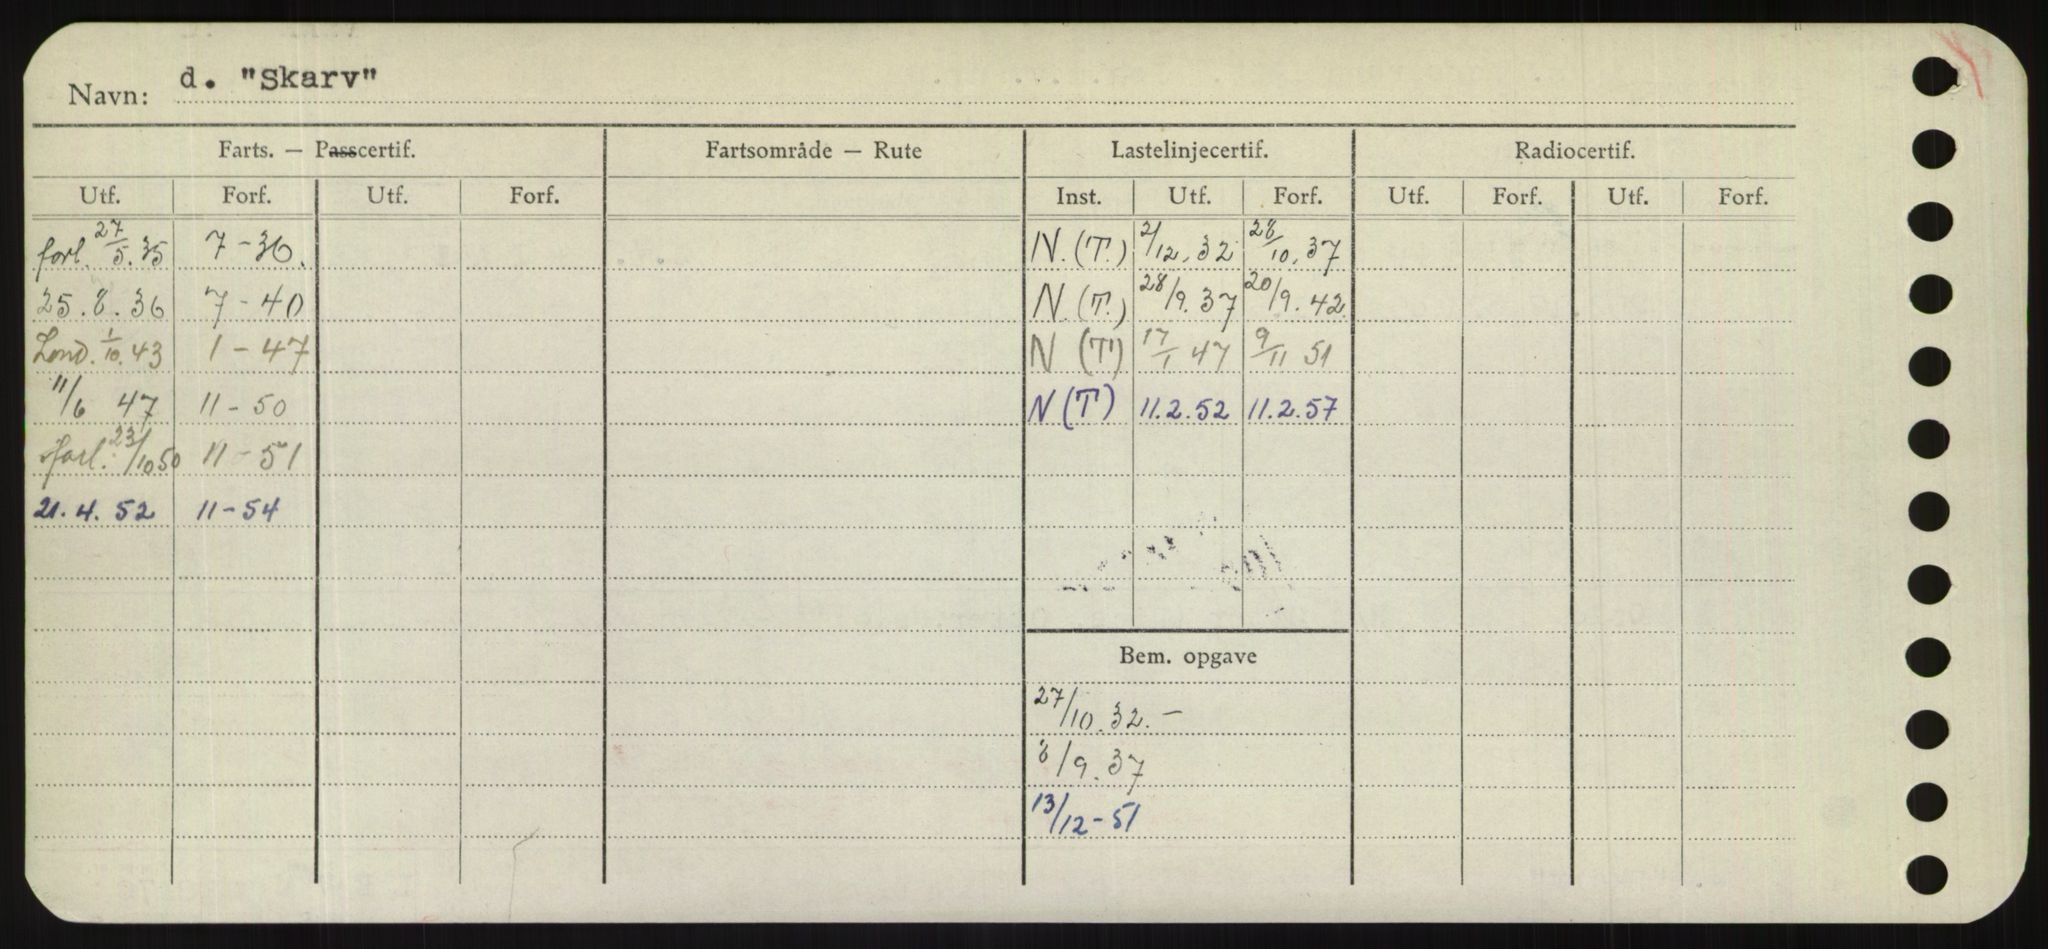 Navn: d. "Skarv"
Farts. — Passcertif. Fartsområde — Rute Lastelinjecertif. Radiocertif.
Utf. Forf. Utf. Forf. Inst. Utf. Forf. Utf. Forf. Utf. Forf.
forl. 27/5.35 7-36. N.(T.) 2/12.32 28/10.37
25.8.36 7-40 N.(T.) 28/9.37 20/9.42
Lond. 1/10.43 1-47 N (T) 17/1 47 9/11 51
11/6 47 11-50 N(T) 11.2.52 11.2.57
forl. 23/10 50 11-51
21.4.52 11-54
Bem. opgave
27/10.32.-
8/9.37
13/12-51